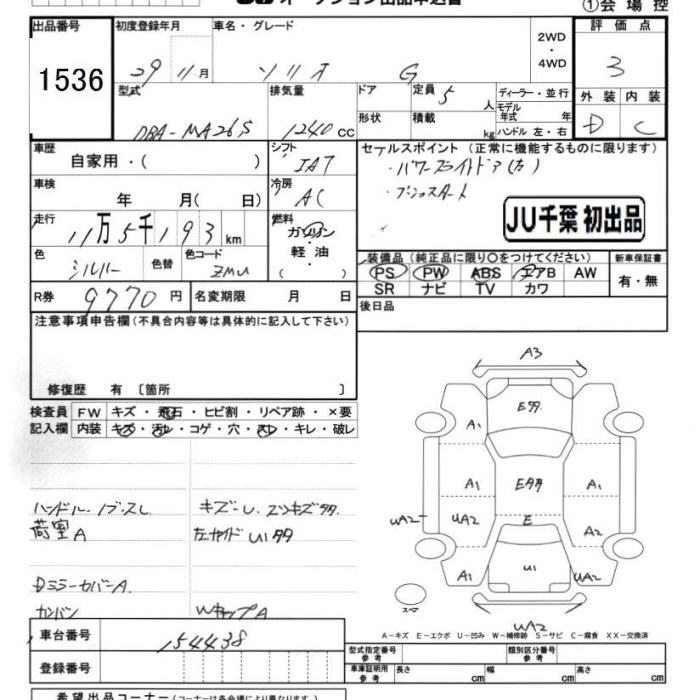 ①会場控
出品番号
1536
初度登録年月
29 11月
車名・グレード
ソリオ G
2WD
・
4WD
評価点
3
外装 内装
D C
型式
DBA-MA26S
排気量
1240 cc
ドア
形状
定員 5 人
積載 kg
ディーラー・並行
モデル
年式 年
ハンドル 左・右
車歴
自家用・( )
シフト
IAT
セールスポイント (正常に機能するものに限ります)
・パワースライドドア(左)
・プッシュスタート
JU千葉 初出品
車検
年 月( 日)
冷房
AC
走行
11万5千193 km
燃料
ガソリン
・
軽油
( )
色
シルバー
色替
色コード
ZMU
装備品 (純正品に限り○をつけてください)
PS PW ABS エアB AW
SR ナビ TV カワ
新車保証書
有・無
R券 9770 円
名変期限 月 日
後日品
注意事項申告欄(不具合内容等は具体的に記入して下さい)
修復歴 有 [箇所 ]
検査員 FW キズ・飛石・ヒビ割・リペア跡・×要
記入欄 内装 キズ・汚レ・コゲ・穴・スレ・キレ・破レ
ハンドル、ノブスレ
荷室A
キズ
左サイドU1タタ
DミラーカバーA
カンバン
WキャップA
A3
Eタタ
A1
A1
Eタタ
A1
UA2
UA2
E
A2
A1
U1
UA2
スペア
UA2
A-キズ E-エクボ U-凹み W-補修跡 S-サビ C-腐食 XX-交換済
車台番号 154438
登録番号
型式指定番号
参考
類別区分番号
参考
車庫証明用
参考
長さ cm 幅 cm 高さ cm
希望出品コーナー(コーナーは各会場により異なります。)